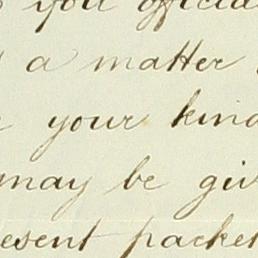 you official
a matter
your kind
may be giv
esent packet